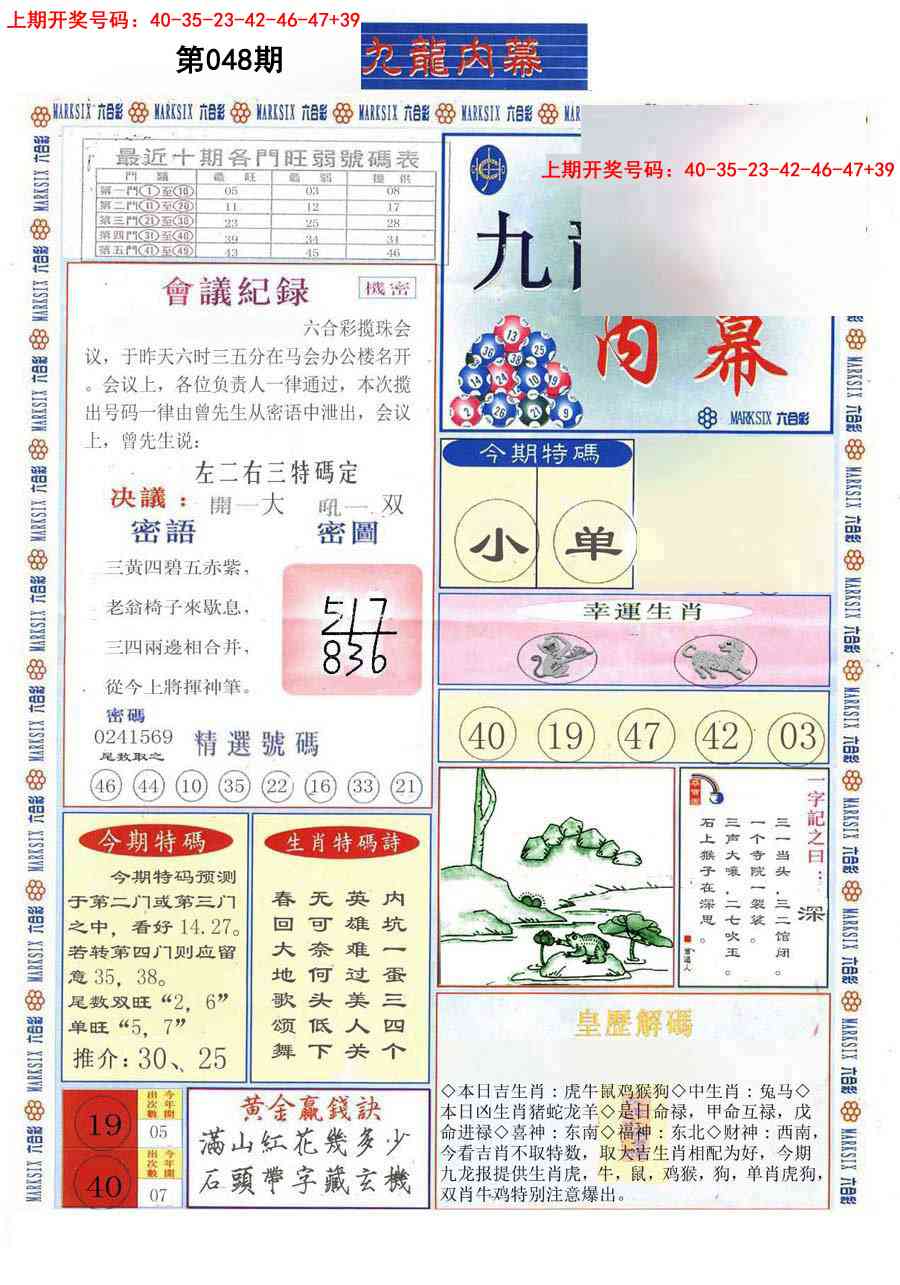 上期开奖号码：40-35-23-42-46-47+39
第048期
九龍内幕
MARKSIX 六合彩
最近十期各門旺弱號碼表
門 類 最 旺 最 弱 提 供
第一門①至⑩ 05 03 08
第二門⑪至⑳ 11 12 17
第三門㉑至㉚ 23 25 28
第四門㉛至㊵ 39 34 31
第五門㊶至㊾ 43 45 46
上期开奖号码：40-35-23-42-46-47+39
九
内幕
13
36 38 25
14 24 10 19
2 26 21 9
MARKSIX 六合彩
會議紀録
機密
六合彩揽珠会
议，于昨天六时三五分在马会办公楼名开
。会议上，各位负责人一律通过，本次揽
出号码一律由曾先生从密语中泄出，会议
上，曾先生说：
左二右三特碼定
决議：開一大 吼一双
密語 密圖
三黄四碧五赤紫，
老翁椅子來歇息，
三四兩邊相合并，
從今上將揮神筆。
517
836
密碼
0241569
尾数取之
精選號碼
46 44 10 35 22 16 33 21
今期特碼
小 单
幸運生肖
40 19 47 42 03
一字記之曰：深
三一当头，三二馆闭。
一个寺院一袈裟。
三声大嚎，二七吹玉。
石上猴子在深思。
今期特碼
今期特码预测
于第二门或第三门
之中，看好14.27。
若转第四门则应留
意35，38。
尾数双旺“2，6”
单旺“5，7”
推介：30、25
生肖特碼詩
内坑一蛋三四个
英雄难过美人关
无可奈何头低下
春回大地歌颂舞
皇歷解碼
◇本日吉生肖：虎牛鼠鸡猴狗◇中生肖：兔马◇
本日凶生肖猪蛇龙羊◇是日命禄，甲命互禄，戊
命进禄◇喜神：东南◇福神：东北◇财神：西南，
今看吉肖不取特数，取大吉生肖相配为好，今期
九龙报提供生肖虎，牛，鼠，鸡猴，狗，单肖虎狗，
双肖牛鸡特别注意爆出。
19
今年開出次數
05
40
今年開出次數
07
黄金贏錢訣
滿山紅花幾多少
石頭帶字藏玄機